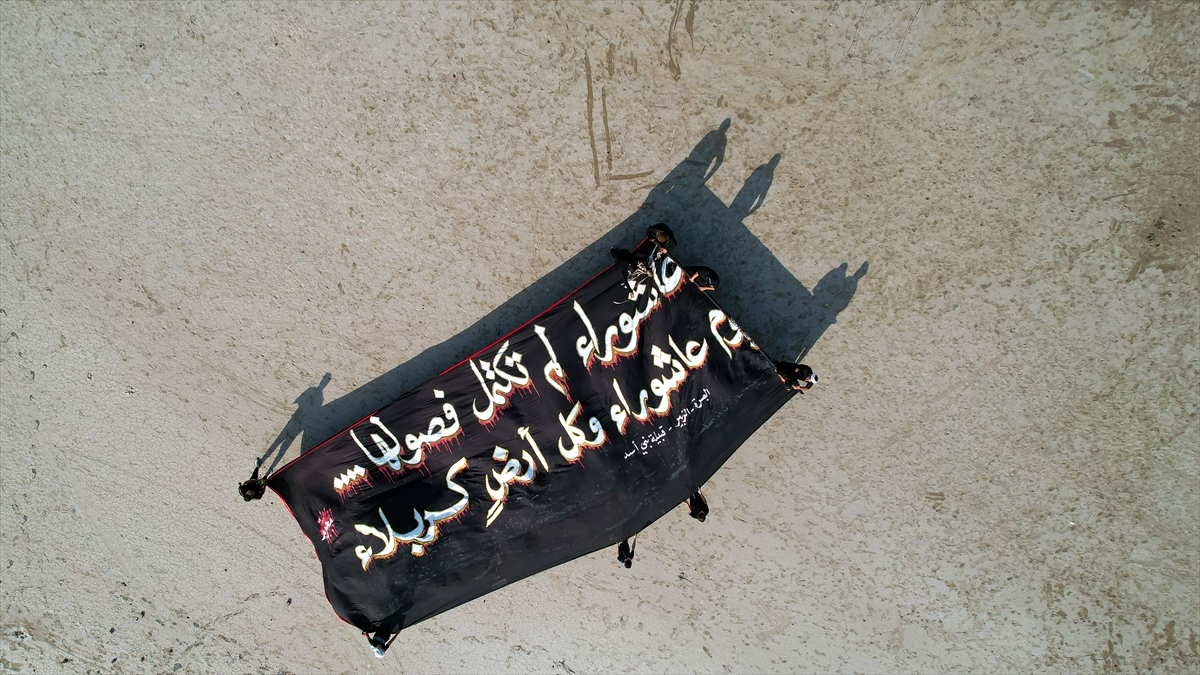 عاشوراء لم تكتمل فصولها ....
عاشوراء وكل أرضٍ كربلاء
البصرة - الزبير - قبيلة بني أسد